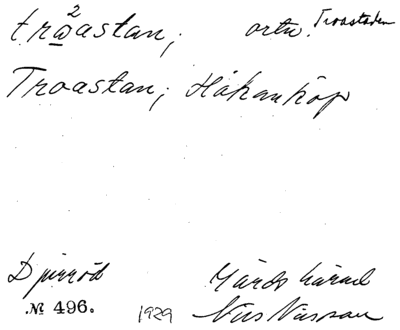 trω²astan; ortn. Troastaden
Troastan; Håkanköp
Djurröd Gärds härad
№ 496. 1929 Nils Nilsson